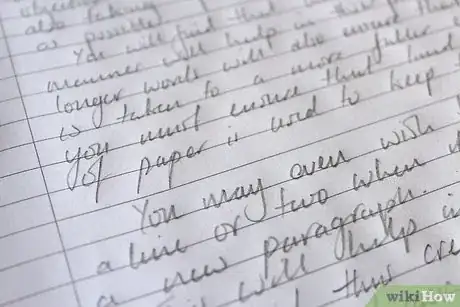 also taking
as possible
You will find that
manner will help in this
longer words will also ensure that
is taken to a more fuller
you must ensure that lined
of paper is used to keep
You may even wish
a line or two when
a new paragraph.
will help
this
wikiHow